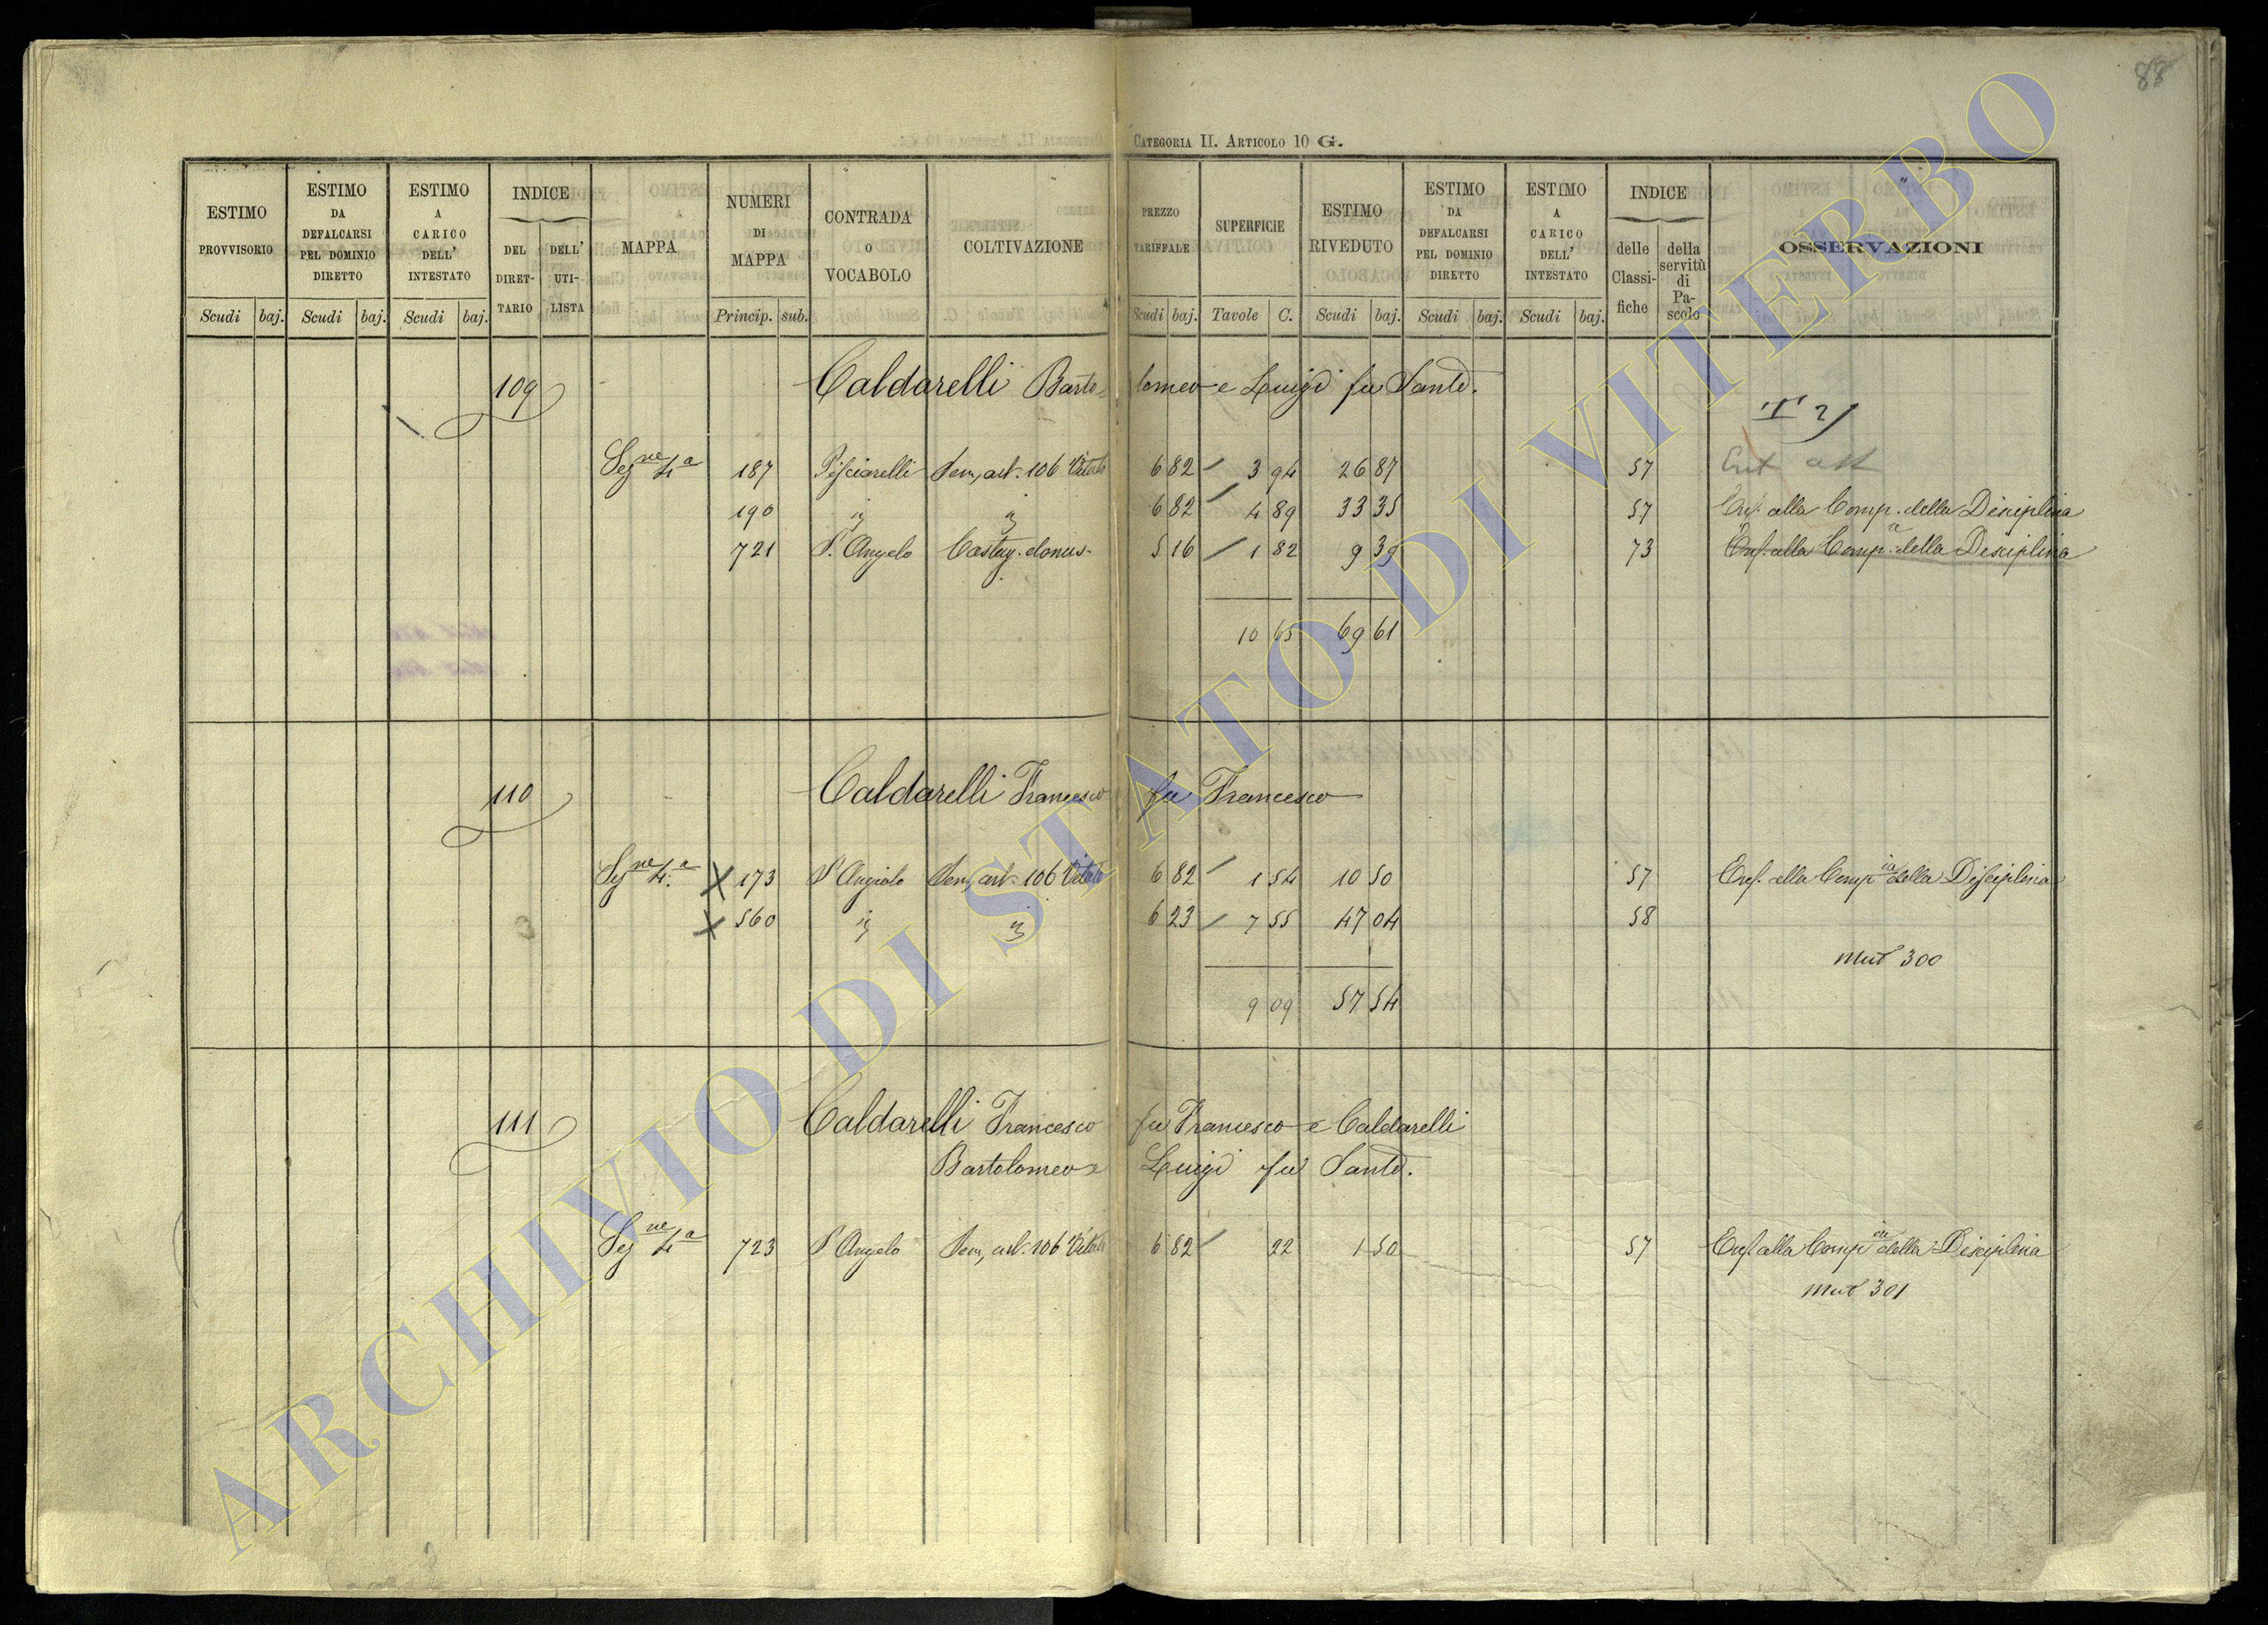 88
CATEGORIA II. ARTICOLO 10 G.
ESTIMO PROVVISORIO
ESTIMO DA DEFALCARSI PEL DOMINIO DIRETTO
ESTIMO A CARICO DELL' INTESTATO
INDICE
DEL DIRET-TARIO
DELL' UTI-LISTA
MAPPA
NUMERI DI MAPPA
CONTRADA O VOCABOLO
COLTIVAZIONE
PREZZO TARIFFALE
SUPERFICIE
ESTIMO RIVEDUTO
ESTIMO DA DEFALCARSI PEL DOMINIO DIRETTO
ESTIMO A CARICO DELL' INTESTATO
INDICE
delle Classi-fiche
della servitù di Pa-scolo
OSSERVAZIONI
Scudi baj. Scudi baj. Scudi baj. Princip. sub. Scudi baj. Tavole C. Scudi baj. Scudi baj. Scudi baj.
109 Caldarelli Bartolomeo e Luigi fu Sante.
Segne 4a 187 Pisciarelli Sem, art. 106 Vitato 6 82 3 94 26 87 57 Enf. all
190 " " 6 82 4 89 33 35 57 Enf. alla Comp. della Disciplina
721 S. Angelo Castag. domes. 5 16 1 82 9 39 73 Enf. alla Comp.ia della Disciplina
10 65 69 61
110 Caldarelli Francesco fu Francesco
Segne 4.a X 173 S Angiolo Sem, art. 106 Vitato 6 82 1 54 10 50 57 Enf. alla Compia della Disciplina
X 560 " " 6 23 7 55 47 04 58
Mut 300
9 09 57 54
111 Caldarelli Francesco fu Francesco e Caldarelli
Bartolomeo e Luigi fu Sante.
Segne 4a 723 S Angelo Sem, art. 106 Vitato 6 82 22 1 50 57 Enf. alla Compia della Disciplina
Mut 301
ARCHIVIO DI STATO DI VITERBO